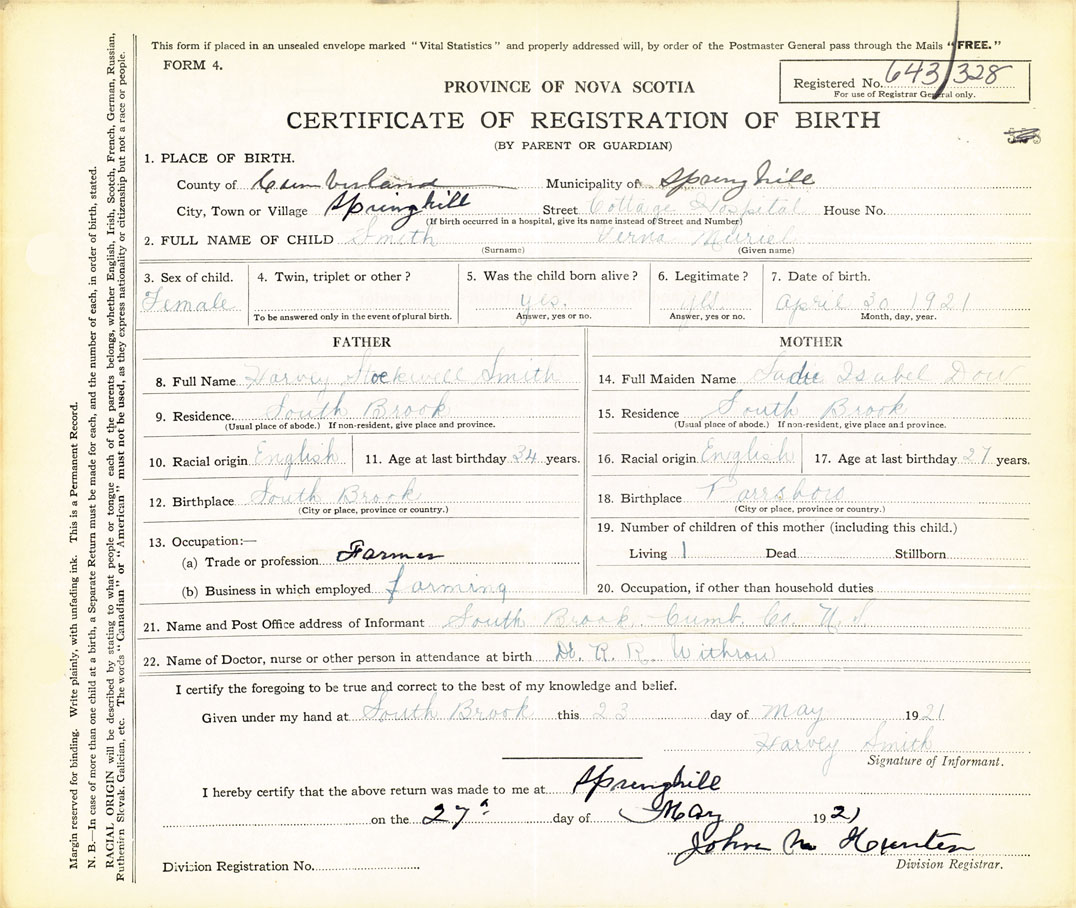 This form if placed in an unsealed envelope marked "Vital Statistics" and properly addressed will, by order of the Postmaster General pass through the Mails "FREE."
FORM 4.
Registered No. 643/328
For use of Registrar General only.
PROVINCE OF NOVA SCOTIA
CERTIFICATE OF REGISTRATION OF BIRTH
(BY PARENT OR GUARDIAN)
1. PLACE OF BIRTH.
County of Cumberland Municipality of Springhill
City, Town or Village Springhill Street Cottage Hospital House No.
(If birth occurred in a hospital, give its name instead of Street and Number)
2. FULL NAME OF CHILD Smith Verna Muriel
(Surname) (Given name)
3. Sex of child. 4. Twin, triplet or other? 5. Was the child born alive? 6. Legitimate? 7. Date of birth.
Female yes. yes. April 30 1921
To be answered only in the event of plural birth. Answer, yes or no. Answer, yes or no. Month, day, year.
FATHER MOTHER
8. Full Name Harvey Stockwell Smith 14. Full Maiden Name Sadie Isabel Dow
9. Residence. South Brook 15. Residence South Brook
(Usual place of abode.) If non-resident, give place and province. (Usual place of abode.) If non-resident, give place and province.
10. Racial origin English 11. Age at last birthday 34 years. 16. Racial origin English 17. Age at last birthday 27 years.
12. Birthplace South Brook 18. Birthplace Parrsboro
(City or place, province or country.) (City or place, province or country.)
13. Occupation:— 19. Number of children of this mother (including this child.)
(a) Trade or profession Farmer Living 1 Dead Stillborn
(b) Business in which employed farming 20. Occupation, if other than household duties
21. Name and Post Office address of Informant South Brook Cumb. Co. N.S.
22. Name of Doctor, nurse or other person in attendance at birth Dr. R. R. Withrow
I certify the foregoing to be true and correct to the best of my knowledge and belief.
Given under my hand at South Brook this 23 day of May 1921
Harvey Smith
Signature of Informant.
I hereby certify that the above return was made to me at Springhill
on the 27 day of May 1921
John M Hunter
Division Registration No. Division Registrar.
Margin reserved for binding. Write plainly, with unfading ink. This is a Permanent Record.
N. B.—In case of more than one child at a birth, a Separate Return must be made for each, and the number of each, in order of birth, stated.
RACIAL ORIGIN will be described by stating to what people or tongue each of the parents belongs, whether English, Irish, Scotch, French, German, Russian,
Ruthenian Slovak, Galician, etc. The words "Canadian" or "American" must not be used, as they express nationality or citizenship but not a race or people.